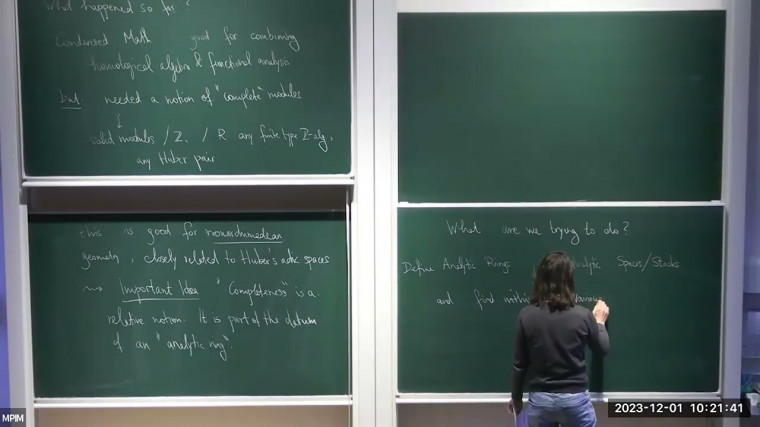 What happened so far?
Condensed Math good for combining
homological algebra & functional analysis
but needed a notion of "complete" modules
solid modules / Z, / R any finite type Z-alg,
any Huber pair
this is good for nonarchimedean
geometry, closely related to Huber's adic spaces
Important Idea "Completeness" is a
relative notion. It is part of the datum
of an "analytic ring".
What are we trying to do?
Define Analytic Rings Spaces/Stacks
and find within various
2023-12-01 10:21:41
MPIM